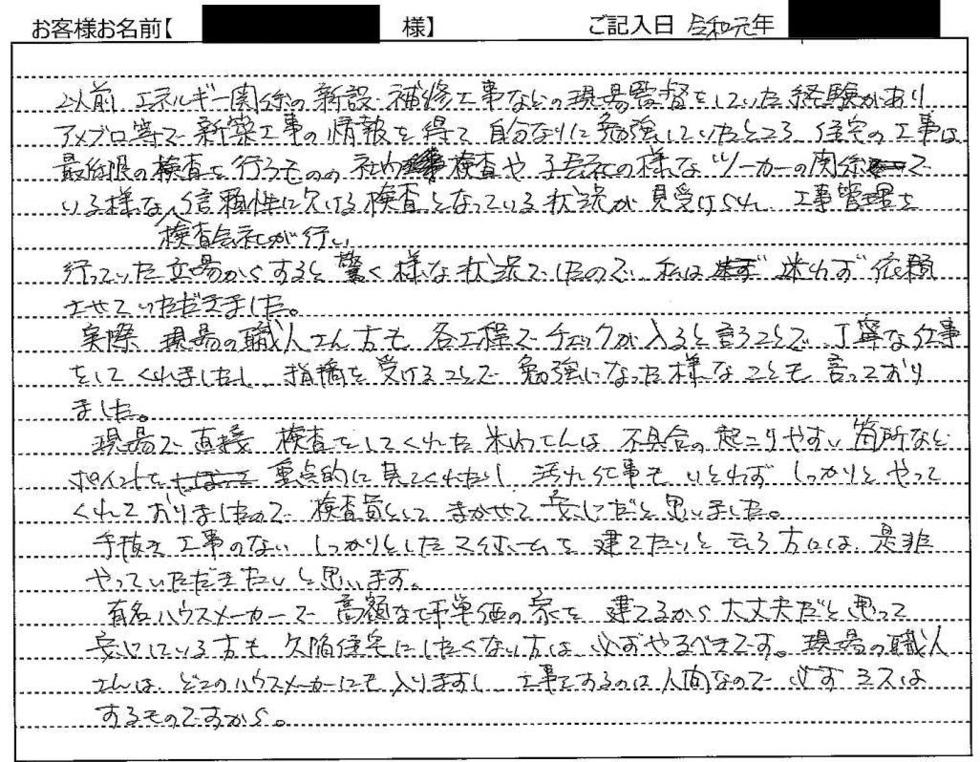 お客様お名前【 様】 ご記入日 令和元年
以前、エネルギー関係の新設、補修工事などの現場監督をしていた経験があり
アメブロ等で新築工事の情報を得て自分なりに勉強していたところ、住宅の工事は
最低限の検査を行うものの社内検査や子会社の様なメーカーの関係で
いる様な信頼性に欠ける検査となっている状況が見受けられ、工事管理を
検査会社が行い
行っていた立場からすると驚く様な状況でしたので、私は迷わず依頼
させていただきました。
実際、現場の職人さん方も各工程でチェックが入ると言うことで、丁寧な仕事
をしてくれましたし、指摘を受けることで勉強になった様なことも言っており
ました。
現場で直接検査をしてくれた さんは不具合の起こりやすい箇所など
ポイントを 重点的に見てくれたし、汚れ仕事もいとわず しっかりとやって
くれておりましたので検査員として まかせて安心だと思いました。
手抜き工事のない しっかりとしたマイホームを建てたいと言う方には、是非
やっていただきたいと思います。
有名ハウスメーカーで高額な坪単価の家を建てるから大丈夫だと思って
安心している方も欠陥住宅にしたくない方は必ずやるべきです。現場の職人
さんは、どこのハウスメーカーにも入りますし、工事をするのは人間なので必ずミスは
するものですから。